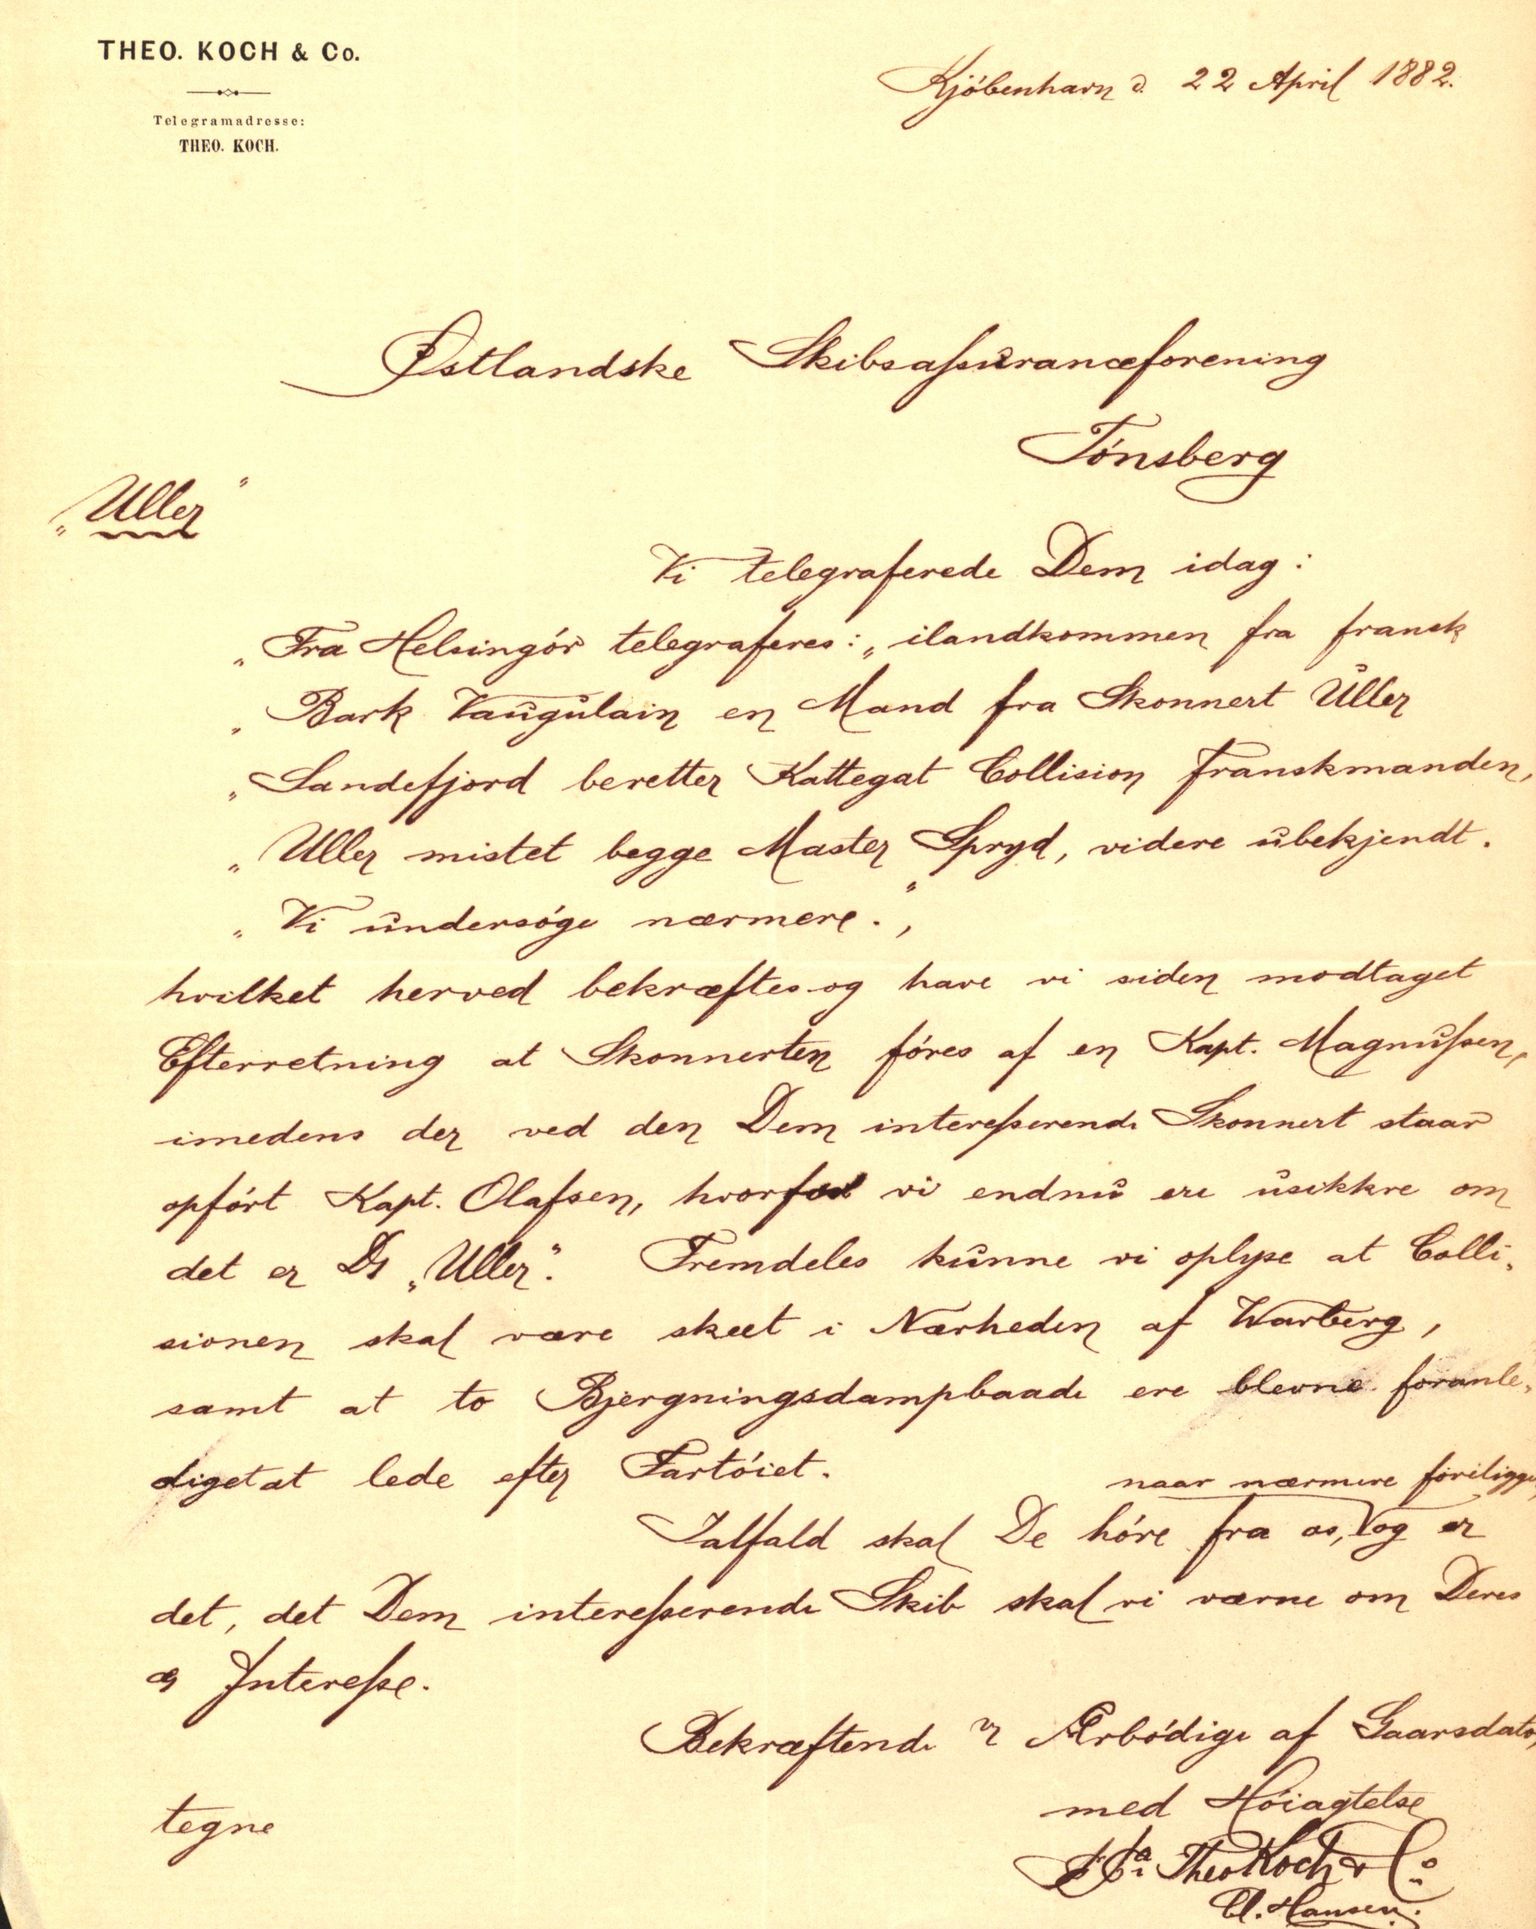 THEO. KOCH & Co.
Telegramadresse:
THEO. KOCH.
Kjöbenhavn d. 22 April 1882.
Østlandske Skibsassuranceforening
Tönsberg
„Uller"
Vi telegraferede Dem idag:
„Fra Helsingör telegraferes: „ilandkommen fra fransk
„Bark Vaugulain en Mand fra Skonnert Uller
„Sandefjord beretter Kattegat Collision Franskmanden,
„Uller mistet begge Master Spryd, videre ubekjendt.
„Vi undersöge nærmere.",
hvilket herved bekræftes og have vi siden modtaget
Efterretning at Skonnerten föres af en Kapt. Magnussen,
imedens der ved den Dem interesserende Skonnert staar
opfört Kapt. Olafsen, hvorfor vi endnu ere usikkre om
det er Ds „Uller". Fremdeles kunne vi oplyse at Colli-
sionen skal være skeet i Nærheden af Warberg,
samt at to Bjergningsdampbaade ere blevne foranle-
diget at lede efter Fartöiet.
naar nærmere foreligger,
Ialfald skal De höre fra os, og er
det, det Dem interesserende Skib skal vi værne om Deres
Interesse.
Bekræftende Ærbödige af Gaarsdato,
tegne
med Höiagtelse
Theo Koch & Co.
Cl. Hansen.